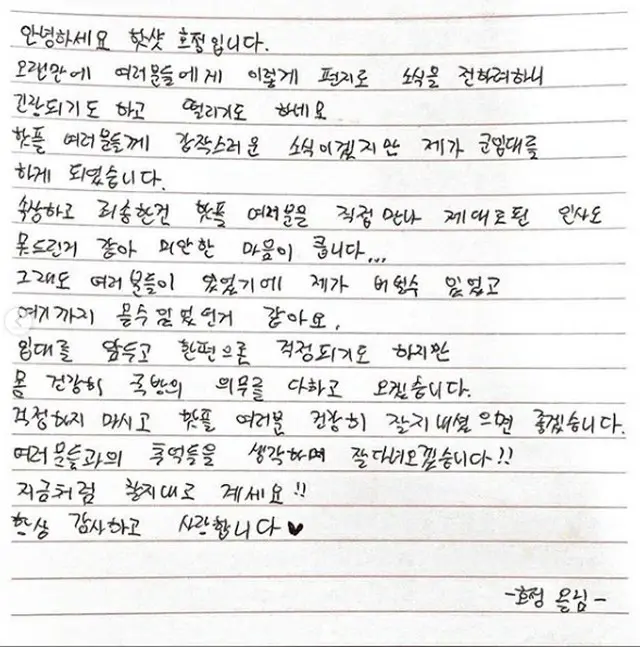 안녕하세요 핫샷 호정입니다.
오랜만에 여러분들에게 이렇게 편지로 소식을 전하려하니
긴장되기도 하고 떨리기도 하네요
핫플 여러분들께 갑작스러운 소식이겠지만 제가 군입대를
하게 되었습니다.
속상하고 죄송한건 핫플 여러분을 직접 만나 제대로된 인사도
못드린거 같아 미안한 마음이 큽니다...
그래도 여러분들이 있었기에 제가 버틸수 있었고
여기까지 올수있었던거 같아요.
입대를 앞두고 한편으론 걱정되기도 하지만
몸 건강히 국방의 의무를 다하고 오겠습니다.
걱정하지 마시고 핫플 여러분 건강히 잘지내셨으면 좋겠습니다.
여러분들과의 추억들을 생각하며 잘다녀오겠습니다!!
지금처럼 이대로 계세요!!
항상 감사하고 사랑합니다♥
-호정 올림-